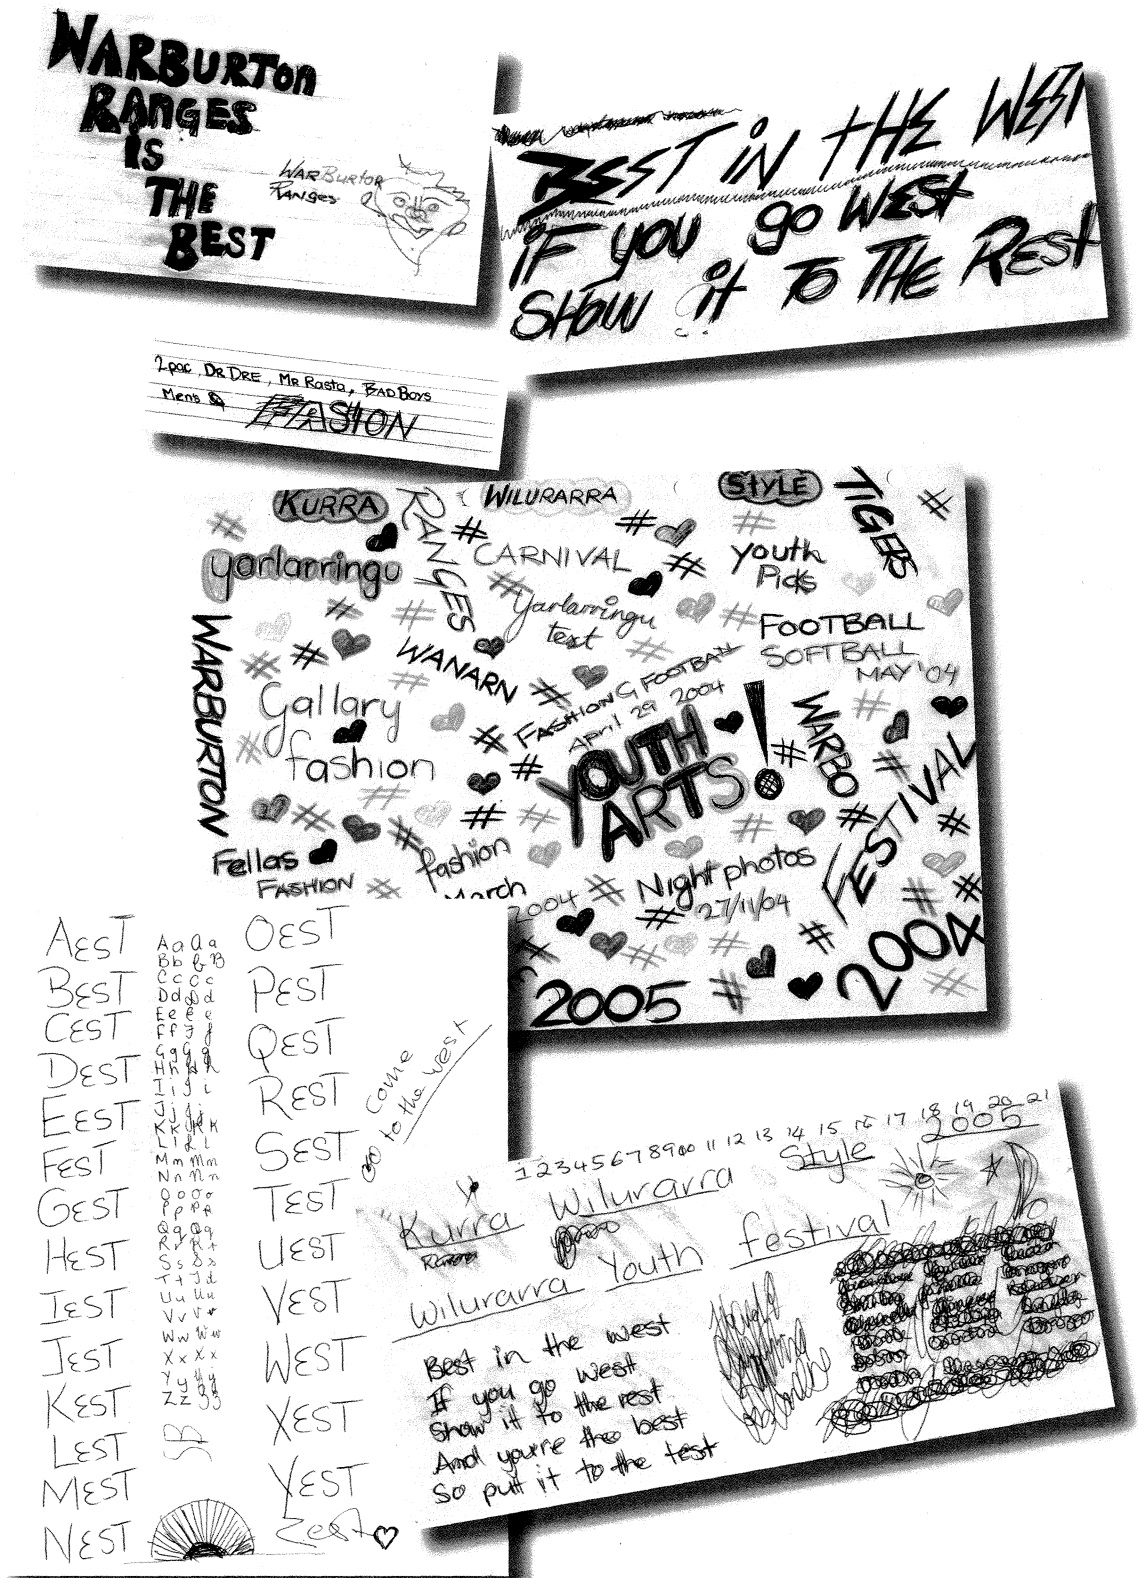 WARBURTON
RANGES
IS
THE
BEST
WARBURTON
RANGES
BEST iN tHE WEST
iF you go WESt
SHOW it TO THE RESt
2pac, DR DRE, MR Rasta, BAD BOYS
Mens
FASION
KURRA
RANGES
WILURARRA
STYLE
TIGERS
yarlarringu
CARNIVAL
youth
Pics
Yarlarringu
test
FOOTBALL
SOFTBALL
MAY '04
WARBURTON
WANARN
Gallary
fashion
FASHION G FOOTBALL
April 29 2004
YOUTH
ARTS!
WARBO
FESTIVAL
Fellas
FASHION
fashion
March
2004
Night photos
27/11/04
2005
2004
AEST
BEST
CEST
DEST
EEST
FEST
GEST
HEST
IEST
JEST
KEST
LEST
MEST
NEST
A a a a
B b b B
C c C c
D d D d
E e e e
F f F f
G g G g
H h H h
I i I i
J j j j
K K K K
L l L L
M m M m
N n N n
O o O o
P p P p
Q q Q q
R r R r
S s S s
T t T t
U u U u
V v V v
W w W w
X x X x
Y y y y
Z z g g
SB
OEST
PEST
QEST
REST
SEST
TEST
UEST
VEST
WEST
XEST
YEST
Zest
come
to the west
1 2 3 4 5 6 7 8 9 10 11 12 13 14 15 16 17 18 19 20 21
Kurra Wilurarra Style 2005
Wilurarra Youth festival
Best in the west
If you go west
Show it to the rest
And you're the best
So put it to the test